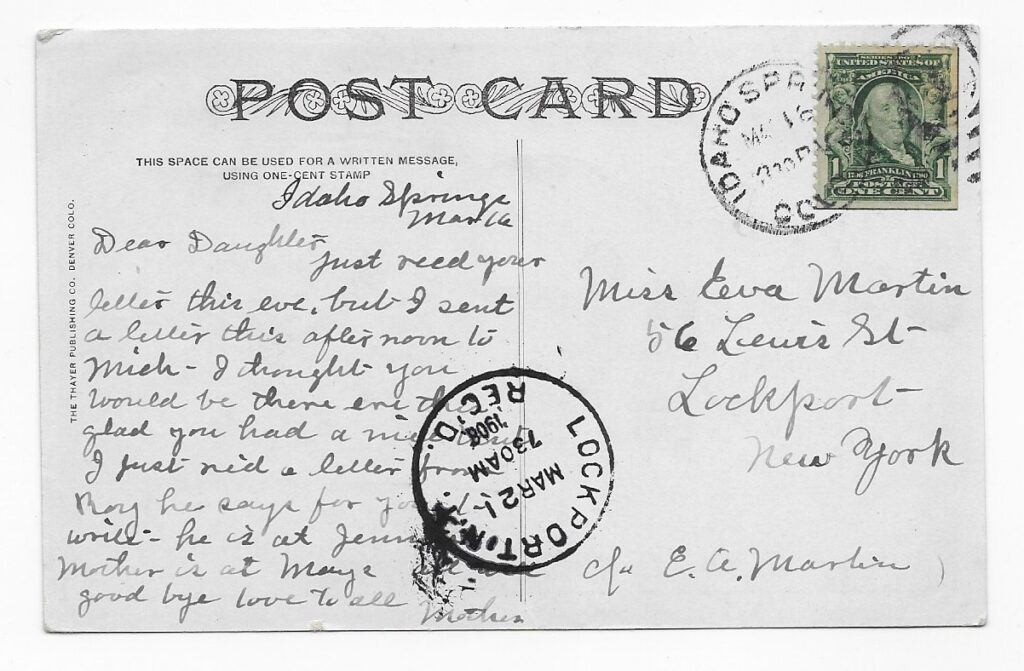 POST CARD
THIS SPACE CAN BE USED FOR A WRITTEN MESSAGE,
USING ONE-CENT STAMP
THE THAYER PUBLISHING CO. DENVER COLO.
Idaho Springs
Mar 16
Dear Daughter
Just recd your
letter this eve, but I sent
a letter this afternoon to
Mich - I thought you
would be there ere this
glad you had a nice
I just recd a letter from
Roy he says for you to
write - he is at
Mother is at Mays
good bye love to all
Mother
IDAHO SPR
MAR 16
COLO
SERIES 1902
UNITED STATES OF
AMERICA
1 FRANKLIN 1
POSTAGE
ONE CENT
Miss Eva Martin
56 Lewis St
Lockport
New York
c/o E. A. Martin
LOCKPORT, N.Y.
MAR 21
730 AM
1908
REC'D.